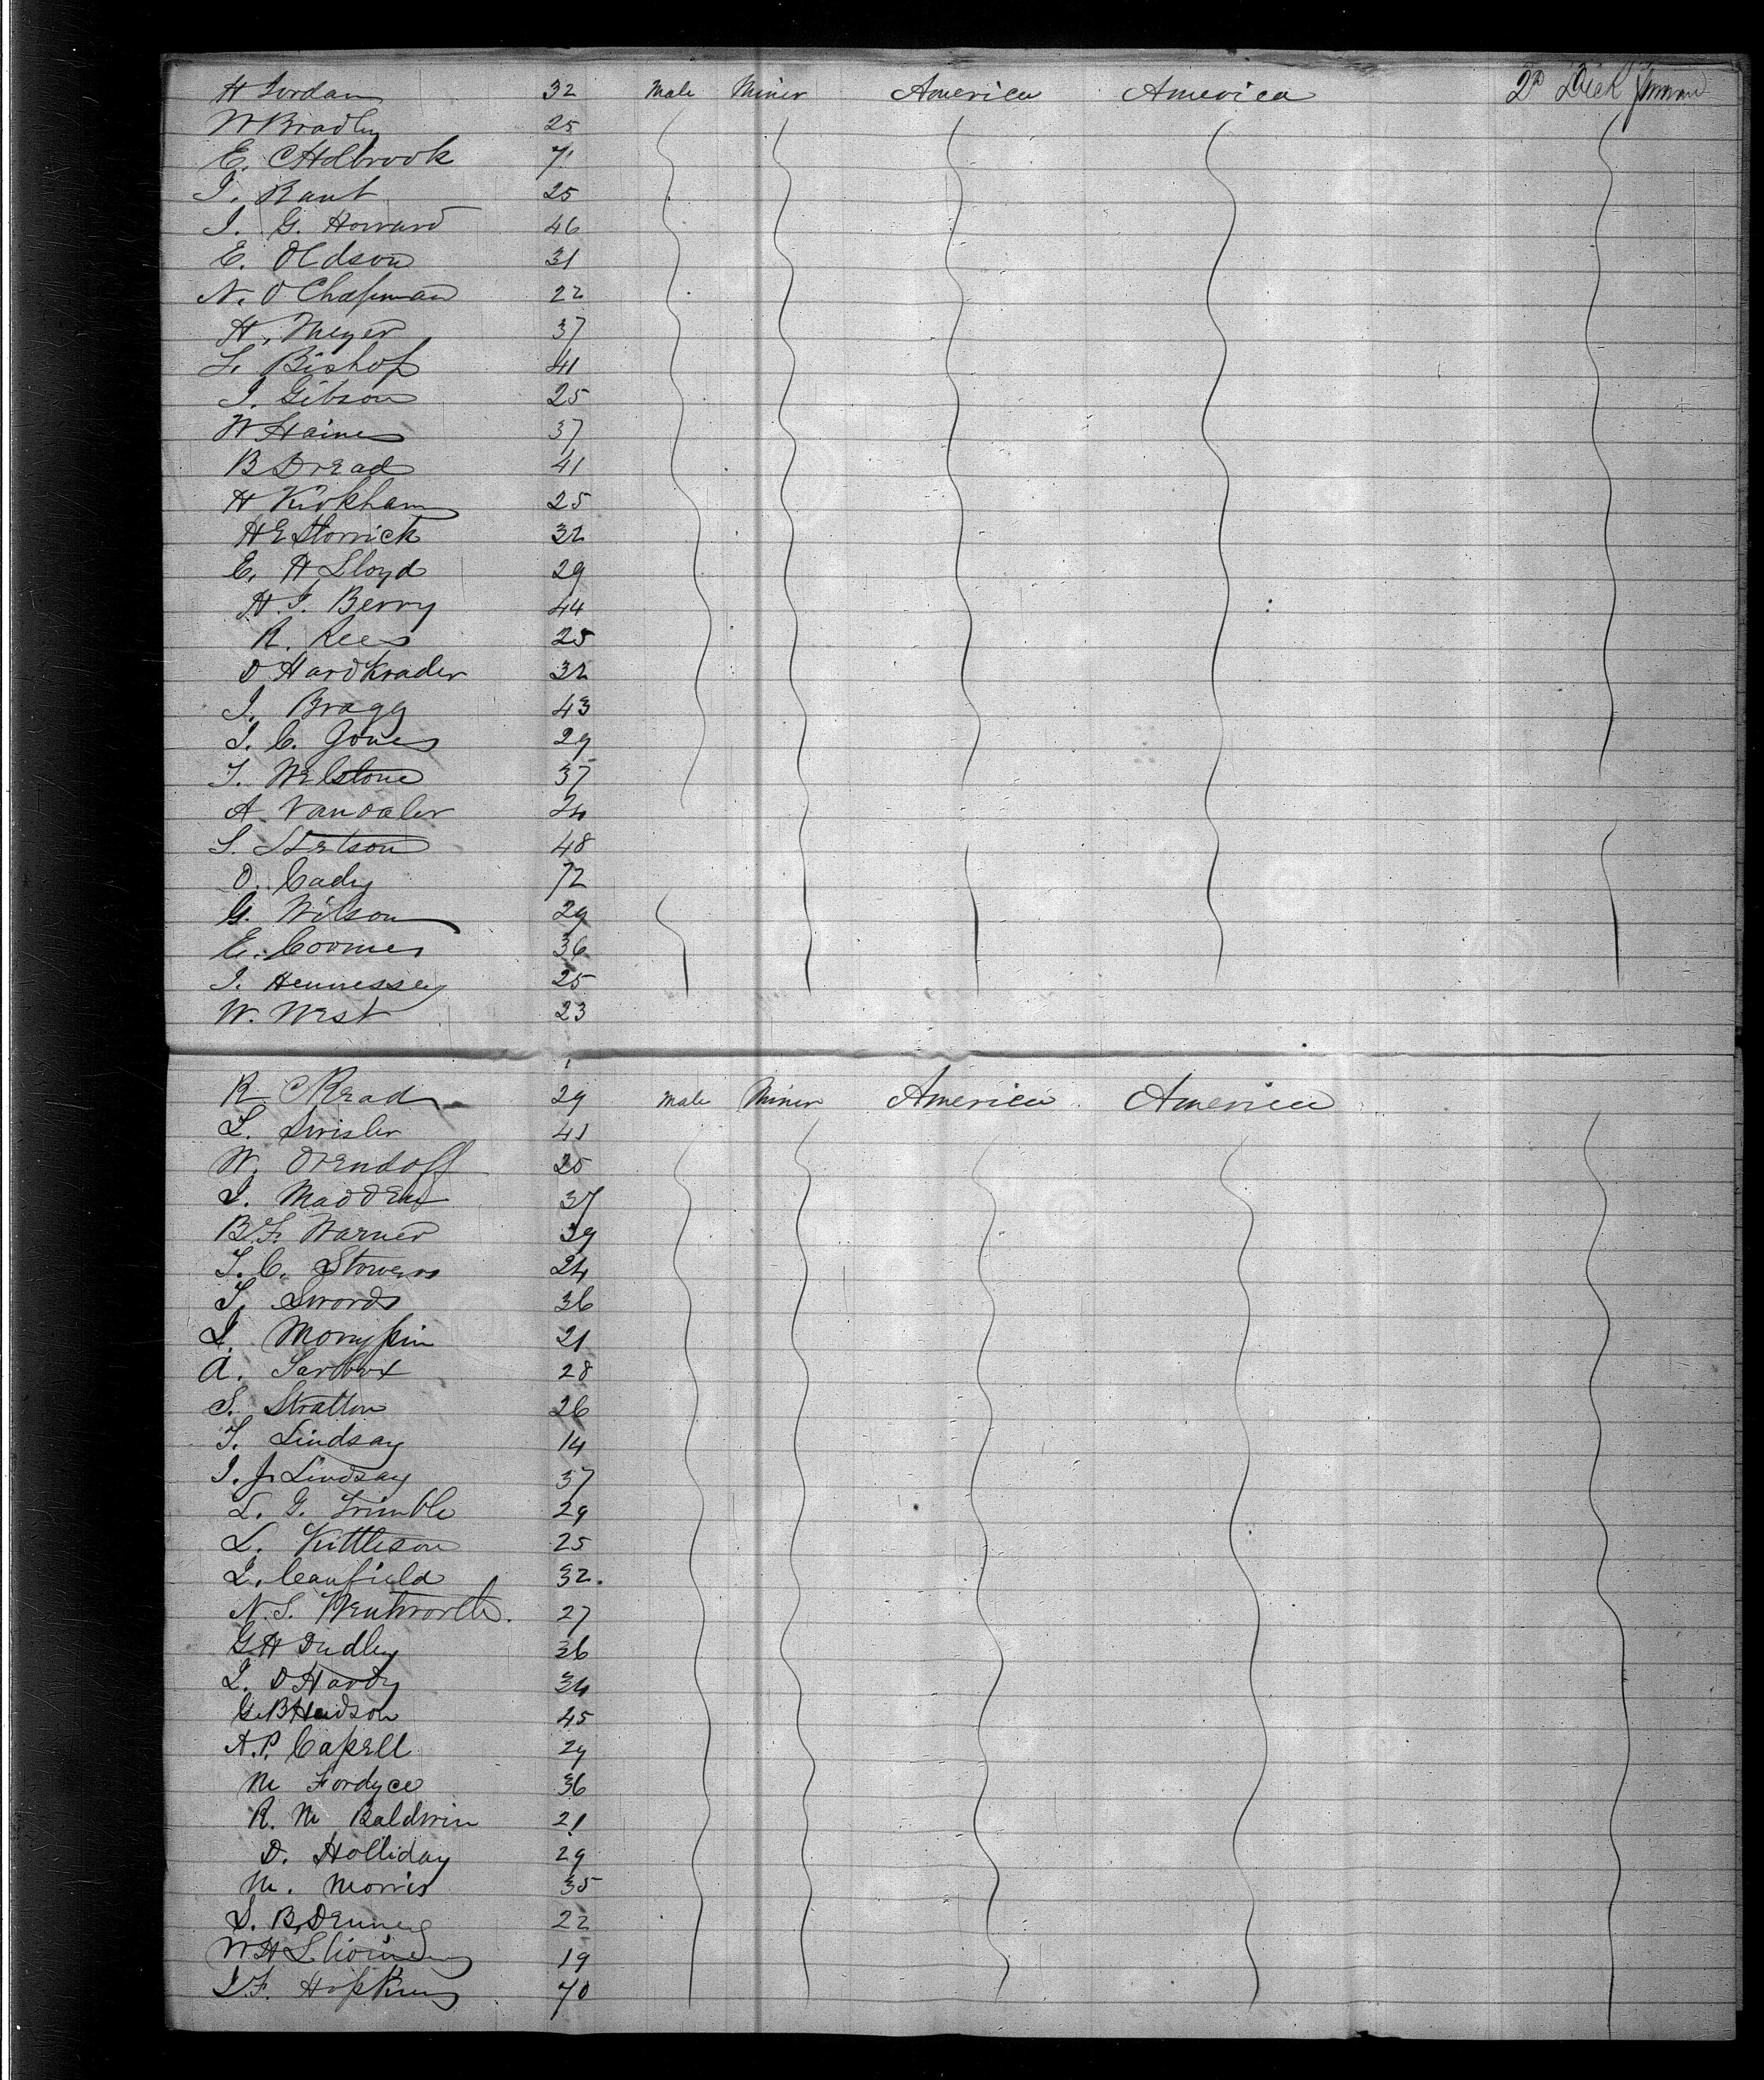 H Jordan 32 Male Miner America America 2D Deck Forward
W Bradley 25
E. C Holbrook 71
J. Raut 25
J. G. Howard 46
E. Oldson 31
N. O Chapman 22
H. Meyer 37
L. Bishop 41
J. Gibson 25
W Haines 37
B Dread 41
H Kirkham 25
H E Storrick 32
E. H Lloyd 29
H. J. Berry 44
R. Rees 25
D Hardkrader 32
J. Bragg 43
J. C. Jones 29
T. Welstone 37
A Vandaler 24
S. Stetson 48
O. Cady 72
G. Wilson 29
E. Coomes 36
J. Hennessey 25
W. West 23
R C Read 29 Male Miner America America
L. Swisler 41
W. Orendoff 25
J. Madden 37
B. F. Warner 39
T. C. Stowers 24
T. Swords 36
J. Morrypin 21
A. Tarbox 28
S. Stratton 26
T. Lindsay 14
J. J. Lindsay 37
L. G. Trimble 29
L. Kittleson 25
J. Canfield 32.
N. S. Wentworth. 27
G. H Dudley 36
J. D Hardy 34
G. B Hudson 45
A. P. Capell 29
M Fordyce 36
R. M Baldwin 21
D. Holliday 29
M. Morris 35
S. B. Denney 22
W H 19
J. F. Hopkins 70